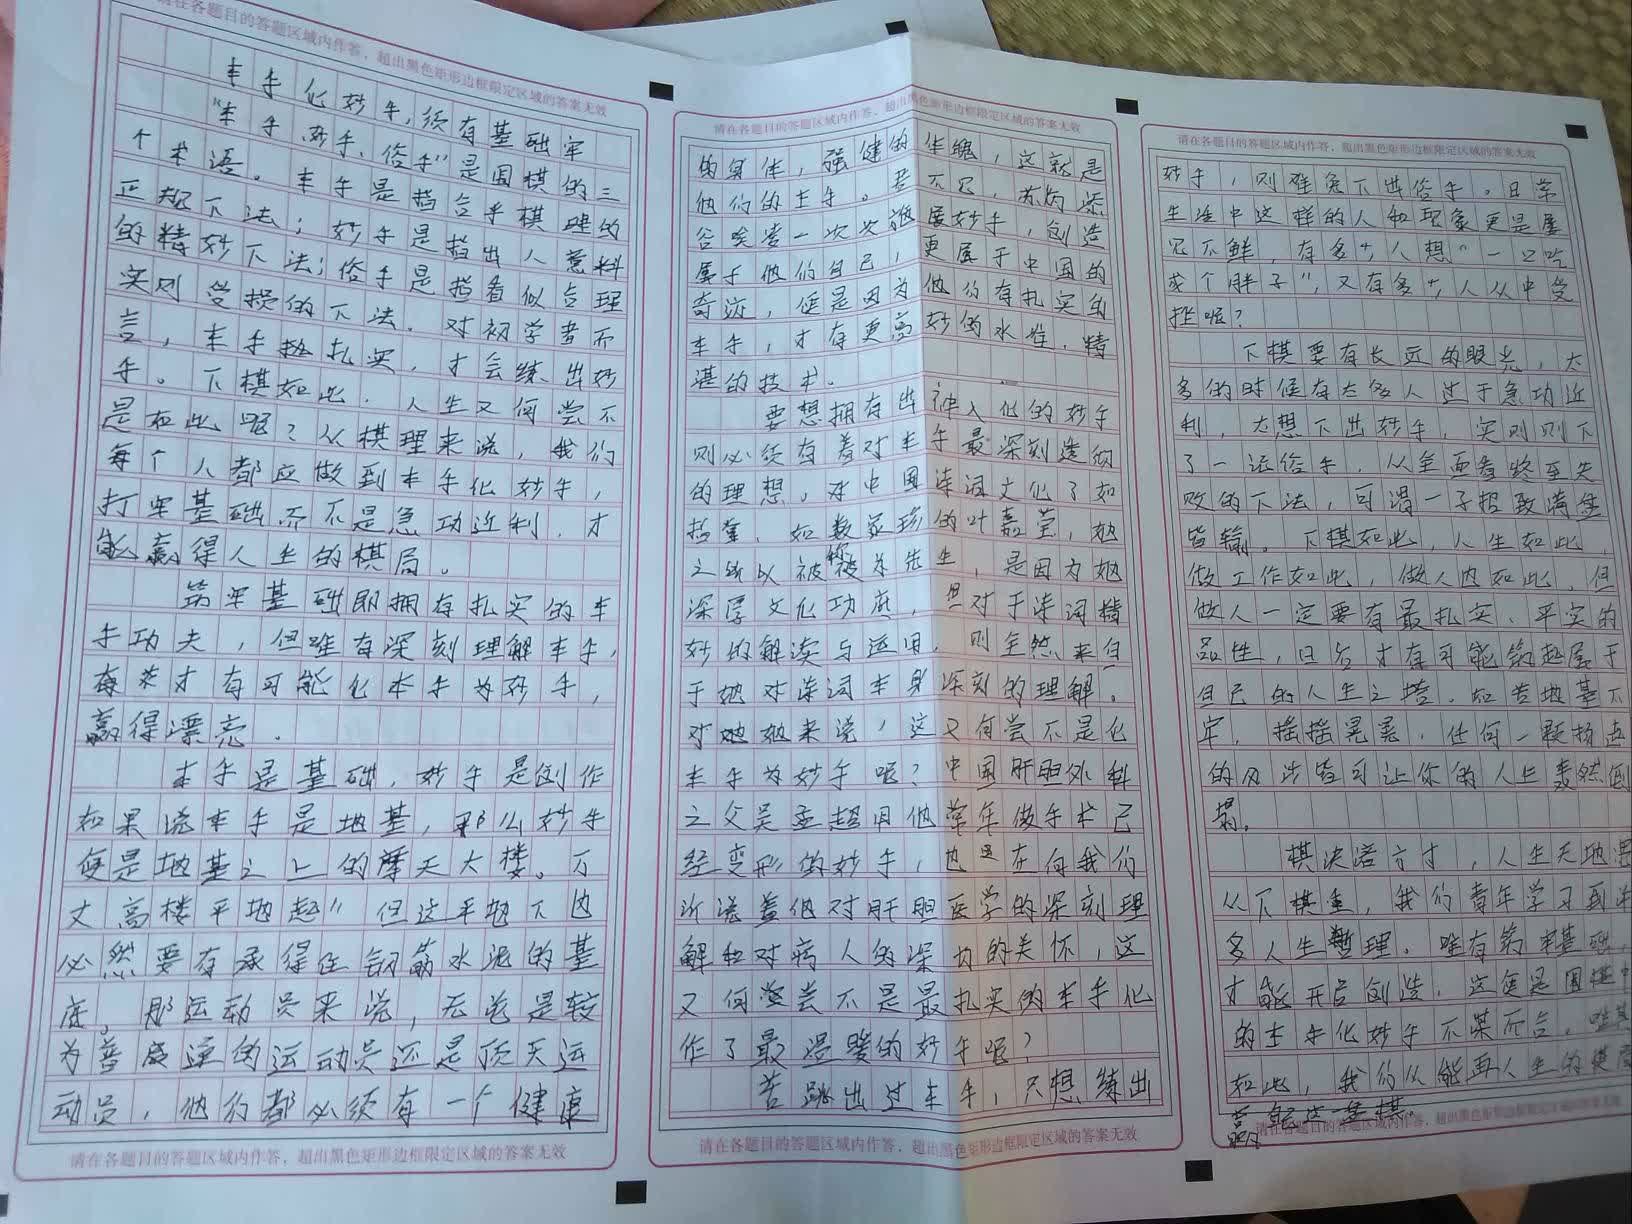 请在各题目的答题区域内作答，超出黑色矩形边框限定区域的答案无效
本手化妙手，须有基础牢
“本手、妙手、俗手”是围棋的三
个术语。本手是指合乎棋理的
正规下法；妙手是指出人意料
的精妙下法；俗手是指看似合理
实则受损的下法。对初学者而
言，本手扎实，才会练出妙
手。下棋如此，人生又何尝不
是如此呢？从棋理来说，我们
每个人都应做到本手化妙手，
打牢基础而不是急功近利，才
能赢得人生的棋局。
筑牢基础即拥有扎实的本
手功夫，但唯有深刻理解本手，
才有可能化本手为妙手，
赢得漂亮。
本手是基础，妙手是创作
如果说本手是地基，那么妙手
便是地基之上的摩天大楼。万
丈高楼平地起”但这平地下也
必然要有承得住钢筋水泥的基
底。那运动员来说，无论是较
为普通的运动员还是顶天运
动员，他们都必须有一个健康
请在各题目的答题区域内作答，超出黑色矩形边框限定区域的答案无效
请在各题目的答题区域内作答，超出黑色矩形边框限定区域的答案无效
的身体，强健的体魄，这就是
他们的本手。苏炳添
谷爱凌一次次施展妙手，创造
属于他们自己，更属于中国的
奇迹，便是因为他们有扎实的
本手，才有更高妙的水准，精
湛的技术。
要想拥有出神入化的妙手
则必须有着对本手最深刻透彻
的理想。对中国诗词文化了如
指掌，如数家珍的叶嘉莹，她
之所以被称为先生，是因为她
深厚文化功底，但对于诗词精
妙的解读与运用，则全然来自
于她对诗词本身深刻的理解。
对她来说，这又何尝不是化
本手为妙手呢？中国肝胆外科
之父吴孟超用他常年做手术已
经变形的妙手，也是在向我们
诉说着他对肝胆医学的深刻理
解和对病人的深切的关怀，这
又何尝不是最扎实的本手化
作了最温暖的妙手呢？
若跳出过本手，只想练出
请在各题目的答题区域内作答，超出黑色矩形边框限定区域的答案无效
请在各题目的答题区域内作答，超出黑色矩形边框限定区域的答案无效
妙手，则难免下出俗手。日常
生活中这样的人和现象更是屡
见不鲜，有多少人想“一口吃
成个胖子”，又有多少人从中受
挫呢？
下棋要有长远的眼光，大
多的时候有太多人过于急功近
利，大想下出妙手，实则则下
了一活俗手，从全面看终至失
败的下法，可谓一子招致满盘
皆输。下棋如此，人生如此，
做工作如此，做人也如此，但
做人一定要有最扎实、平实的
品性，只有才有可能筑起属于
自己的人生之塔。如若地基不
牢，摇摇晃晃，任何一颗扬起
的风沙皆可让你的人生轰然倒
塌。
棋决落方寸，人生天地
从下棋里，我们青年学习到许
多人生哲理。唯有筑牢基础，
才能开启创造，这便是围棋中
的本手化妙手不谋而合，唯其
如此，我们从能再人生的棋局
赢一棋。
请在各题目的答题区域内作答，超出黑色矩形边框限定区域的答案无效